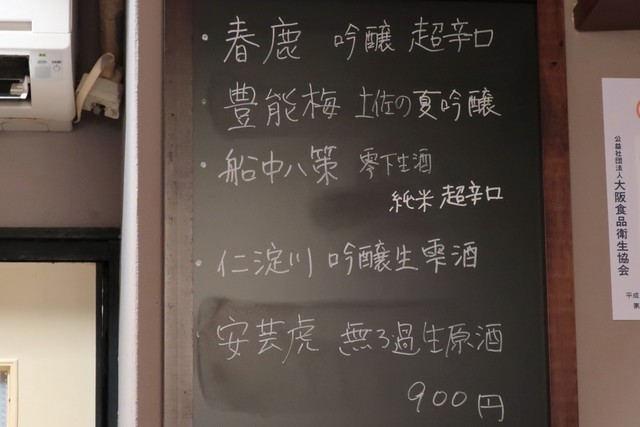 ・春鹿 吟醸 超辛口
・豊能梅 土佐の夏吟醸
・船中八策 零下生酒
純米 超辛口
・仁淀川 吟醸生雫酒
・安芸虎 無ろ過生原酒
900円
公益社団法人
大阪食品衛生協会
平成